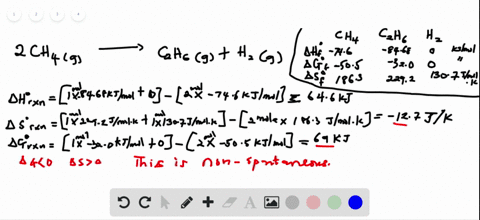 CH₄ C₂H₆ H₂
2 CH₄(g) ⟶ C₂H₆(g) + H₂(g)
ΔH°f -74.6 -84.68 0 kJ/mol
ΔG°f -50.5 -32.0 0 "
ΔS°f 186.3 229.2 130.7 J/mol.K
ΔH°rxn = [1 mol x -84.68 kJ/mol + 0] - [2 mol x -74.6 kJ/mol] = 64.6 kJ
ΔS°rxn = [1 x 229.2 J/mol.K + 1 mol x 130.7 J/mol.K] - [2 mole x 186.3 J/mol.K] = -12.7 J/K
ΔG°rxn = [1 mol x -32.0 kJ/mol + 0] - [2 mol x -50.5 kJ/mol] = 69 kJ
ΔS>0 This is non-spontaneous.